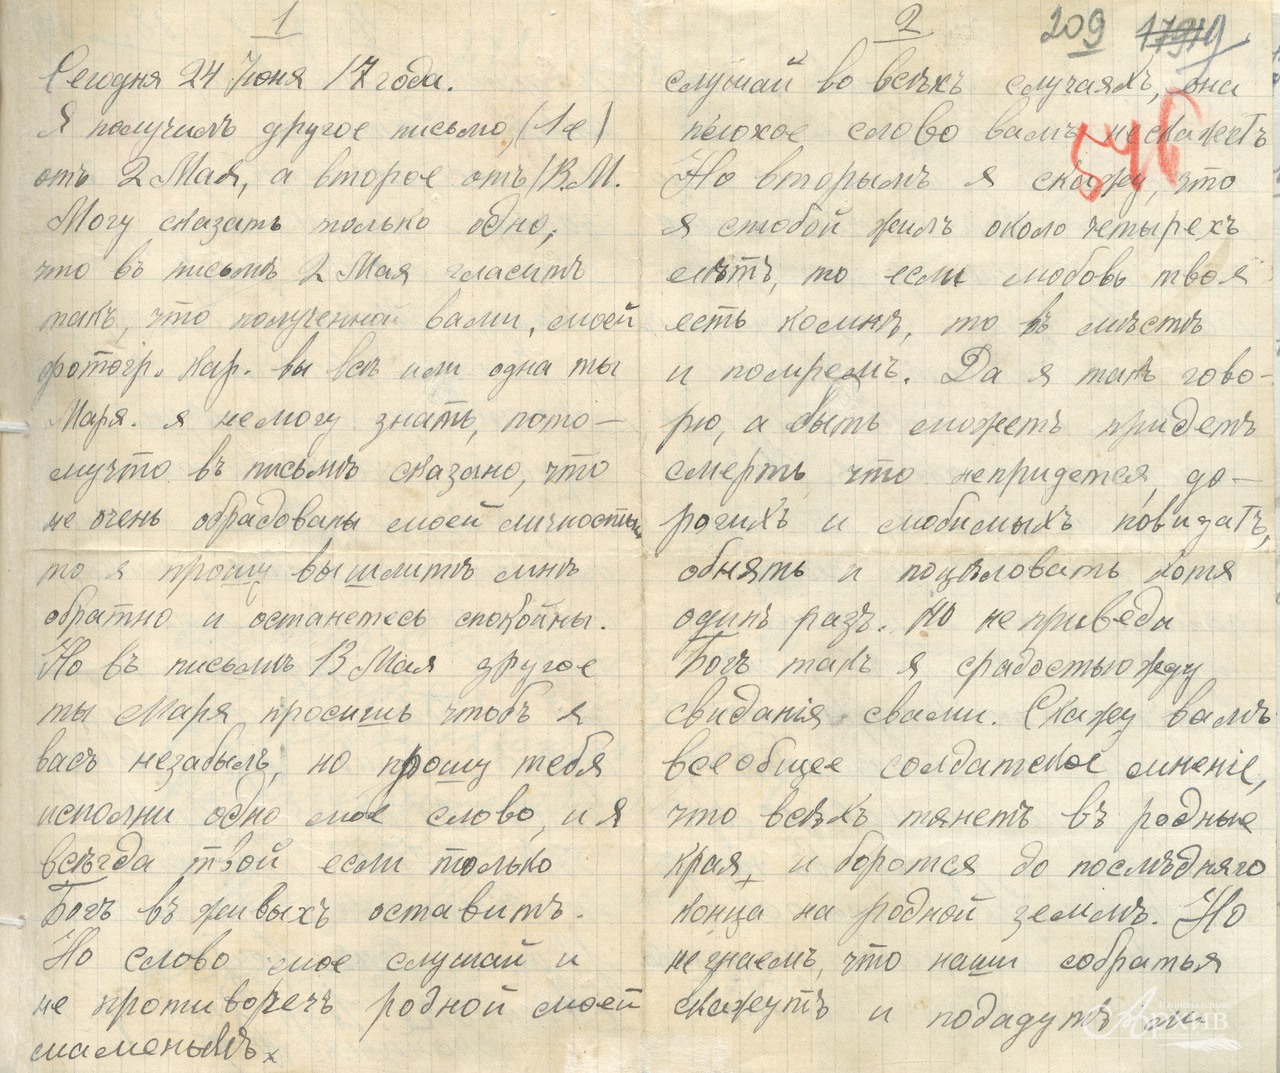 1
Сегодня 24 Іюня 17 года.
Я получилъ другое письмо, (1е)
отъ 2 Мая, а второе отъ 13.М.
Могу сказать только одно,
что въ письмѣ 2 Мая гласитъ
такъ, что полученной вами, моей
фотогр. кар. вы всѣ или одна ты
Маря. я немогу знать, пото-
мучто въ письмѣ сказано, что
не очень обрадованы моей личностью
то я прошу вышлитѣ мнѣ
обратно и останетесь спокойны.
Но въ письмѣ 13 Мая другое
ты Маря просишь чтобъ я
васъ незабылъ, но прошу тебя
исполни одно мое слово, и я
всѣгда твой если только
Богъ въ живыхъ оставитъ.
Но слово мое слушай и
не противоречь родной моей
маменькѣ.
2
209 17919
54б
слушай во всѣхъ случаяхъ, она
плохое слово вамъ нескажетъ
Но вторымъ я скажу, что
я стобой жилъ около четырехъ
лѣтъ, то если любовь твоя
есть комнѣ, то въ мѣстѣ
и помремъ. Да я такъ гово-
рю, а быть можетъ придетъ
смерть что непридется, до-
рогихъ и любимыхъ повидать,
обнять и поцѣловать хотя
одинъ разъ. Но не приведи
Богъ такъ я срадостью жду
свиданія свами. Скажу вамъ
всеобщее солдатское мненіе,
что всѣхъ тянетъ въ родные
края, и боротся до послѣдняго
конца на родной землѣ. Но
незнаемъ, что наши собратья
скажутъ и подадутъ ли
Национальный
Архив